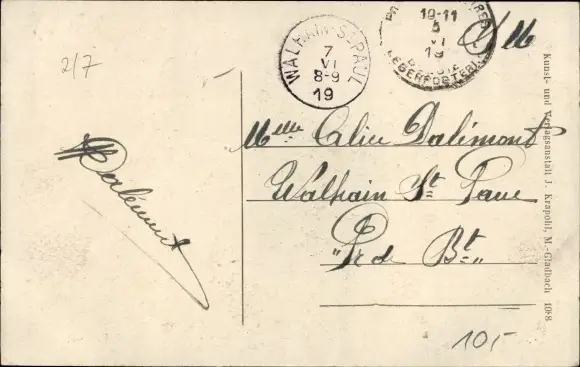 2/7
WALHAIN-ST-PAUL
7
VI
8-9
19
10-11
5
VI
19
S.M.
Melle Alice Dalimont
Walhain St Paul
Pr de Bt
Dalimont
Kunst- und Verlagsanstalt J. Krapohl, M.-Gladbach
10,-